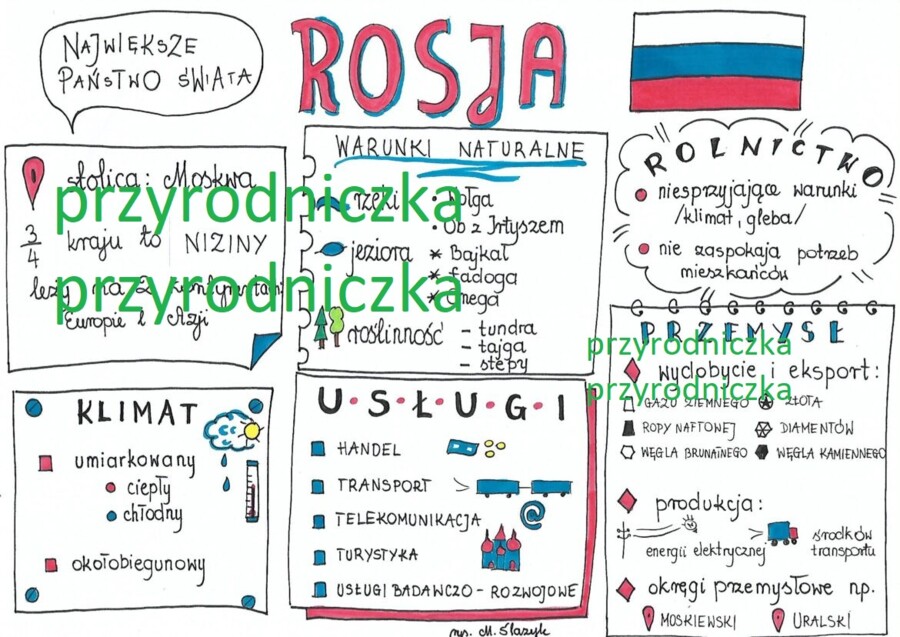 NAJWIĘKSZE
PAŃSTWO ŚWIATA
ROSJA
stolica: Moskwa
3/4 kraju to NIZINY
leży na 2 kontynentach
Europie i Azji
przyrodniczka
przyrodniczka
WARUNKI NATURALNE
rzeki
• Wołga
• Ob z Irtyszem
jeziora
* Bajkał
* Ładoga
* Onega
roślinność
- tundra
- tajga
- stepy
ROLNICTWO
niesprzyjające warunki
/klimat, gleba/
nie zaspokaja potrzeb
mieszkańców
KLIMAT
umiarkowany
ciepły
chłodny
okołobiegunowy
U•S•Ł•U•G•I
HANDEL
TRANSPORT
TELEKOMUNIKACJA
@
TURYSTYKA
USŁUGI BADAWCZO - ROZWOJOWE
PRZEMYSŁ
przyrodniczka
wydobycie i eksport:
przyrodniczka
GAZU ZIEMNEGO
ZŁOTA
ROPY NAFTOWEJ
DIAMENTÓW
WĘGLA BRUNATNEGO
WĘGLA KAMIENNEGO
produkcja:
energii elektrycznej
środków
transportu
okręgi przemysłowe np.
MOSKIEWSKI
URALSKI
rys. M. Ślazyk